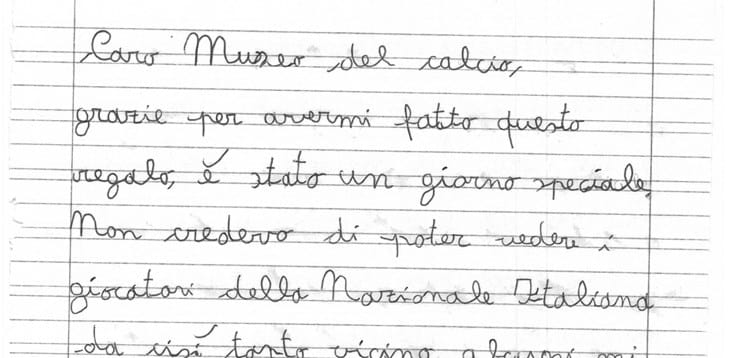 Caro Museo del calcio,
grazie per avermi fatto questo
regalo, é stato un giorno speciale.
Non credevo di poter vedere i
giocatori della Nazionale Italiana
da cisí tanto vicino alcuni mi